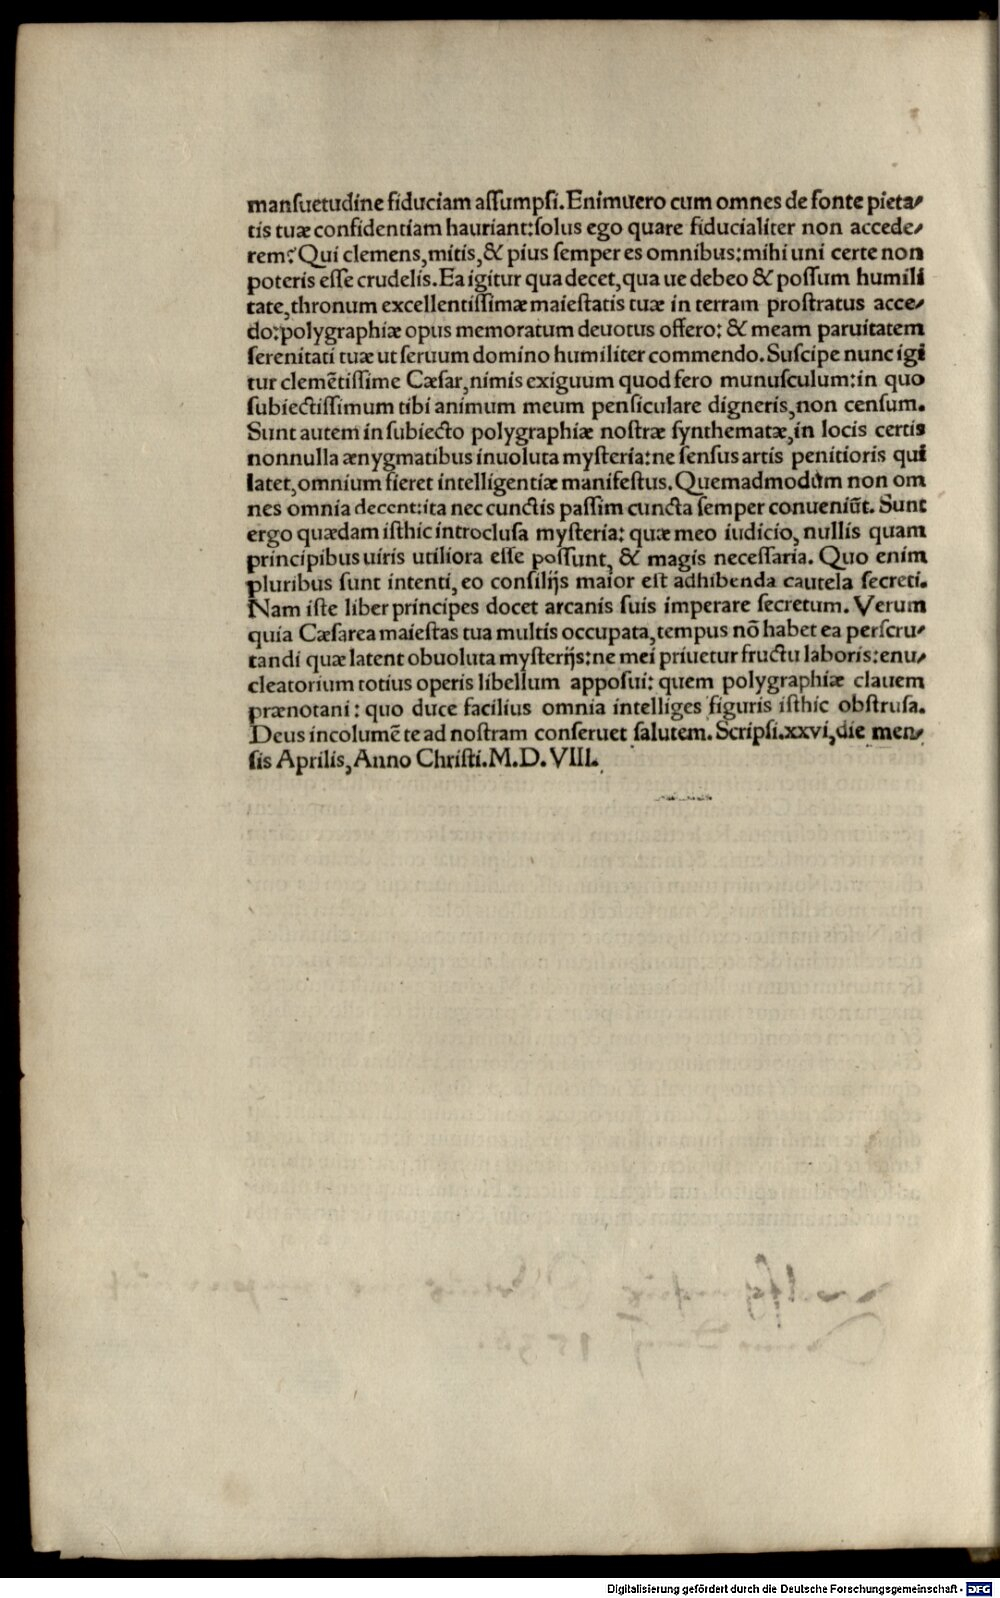 manſuetudine fiduciam aſſumpſi. Enimuero cum omnes de fonte pieta⸗
tis tuæ confidentiam hauriant: ſolus ego quare fiducialiter non accede⸗
rem? Qui clemens, mitis, & pius ſemper es omnibus: mihi uni certe non
poteris eſſe crudelis. Ea igitur qua decet, qua ue debeo & poſſum humili
tate, thronum excellentiſſimæ maieſtatis tuæ in terram proſtratus acce⸗
do: polygraphiæ opus memoratum deuotus offero: & meam paruitatem
ſerenitati tuæ ut ſeruum domino humiliter commendo. Suſcipe nunc igi
tur clemẽtiſſime Cæſar, nimis exiguum quod fero munuſculum: in quo
ſubiectiſſimum tibi animum meum penſiculare digneris, non cenſum.
Sunt autem in ſubiecto polygraphiæ noſtræ ſynthematæ, in locis certis
nonnulla ænygmatibus inuoluta myſteria: ne ſenſus artis penitioris qui
latet, omnium fieret intelligentiæ manifeſtus. Quemadmodùm non om
nes omnia decent: ita nec cunctis paſſim cuncta ſemper conueniũt. Sunt
ergo quædam iſthic introcluſa myſteria: quæ meo iudicio, nullis quam
principibus uiris utiliora eſſe poſſunt, & magis neceſſaria. Quo enim
pluribus ſunt intenti, eo conſilijs maior eſt adhibenda cautela ſecreti.
Nam iſte liber principes docet arcanis ſuis imperare ſecretum. Verum
quia Cæſarea maieſtas tua multis occupata, tempus nõ habet ea perſcru⸗
tandi quæ latent obuoluta myſterijs: ne mei priuetur fructu laboris: enu⸗
cleatorium totius operis libellum appoſui: quem polygraphiæ clauem
prænotani: quo duce facilius omnia intelliges figuris iſthic obſtruſa.
Deus incolumẽ te ad noſtram conſeruet ſalutem. Scripſi. xxvi, die men⸗
ſis Aprilis, Anno Chriſti. M. D. VIII.
Digitalisierung gefördert durch die Deutsche Forschungsgemeinschaft - DFG